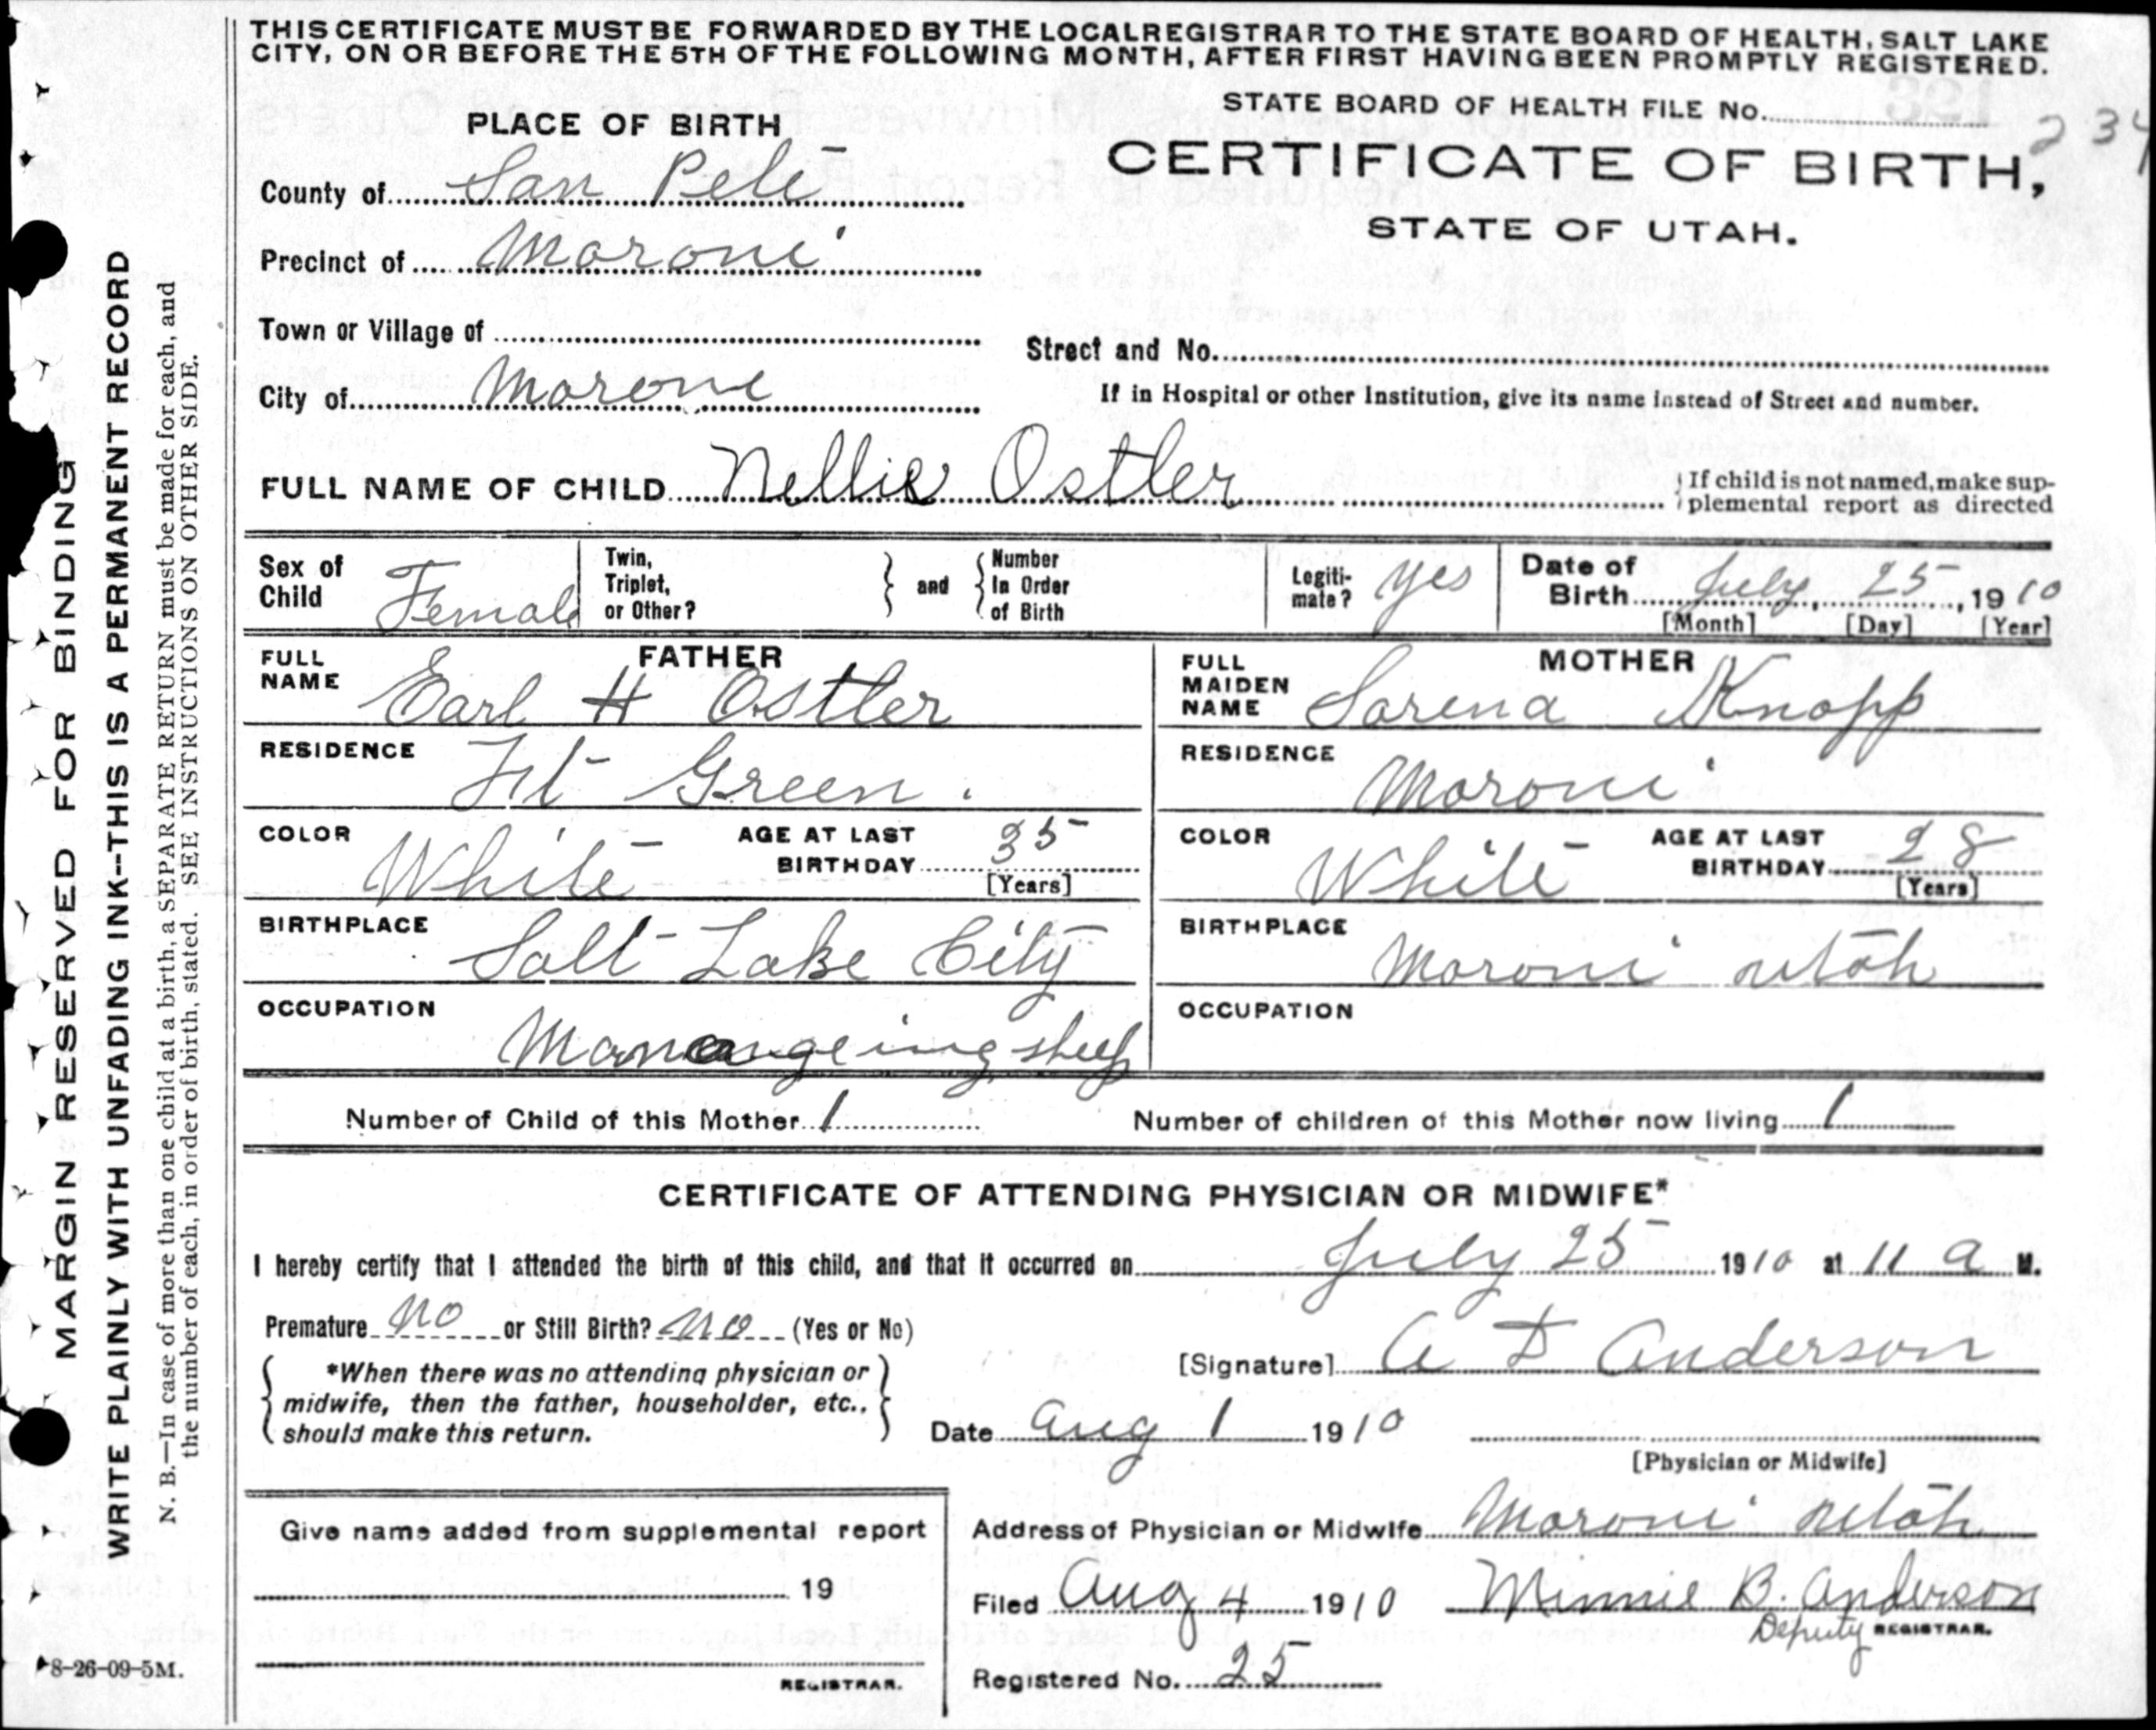 THIS CERTIFICATE MUST BE FORWARDED BY THE LOCAL REGISTRAR TO THE STATE BOARD OF HEALTH, SALT LAKE
CITY, ON OR BEFORE THE 5TH OF THE FOLLOWING MONTH, AFTER FIRST HAVING BEEN PROMPTLY REGISTERED.
STATE BOARD OF HEALTH FILE No. 234
PLACE OF BIRTH
CERTIFICATE OF BIRTH,
STATE OF UTAH.
County of San Pete
Precinct of Moroni
Town or Village of
Street and No.
City of Moroni
If in Hospital or other Institution, give its name instead of Street and number.
FULL NAME OF CHILD Nellie Ostler
If child is not named, make sup-
plemental report as directed
Sex of Child Female
Twin, Triplet, or Other? and Number In Order of Birth
Legiti-mate? yes
Date of Birth July, 25, 1910
[Month] [Day] [Year]
FATHER
FULL NAME Earl H Ostler
RESIDENCE Ft Green.
COLOR White AGE AT LAST BIRTHDAY 35
[Years]
BIRTHPLACE Salt Lake City
OCCUPATION Manangeing sheep
MOTHER
FULL MAIDEN NAME Sarena Knopp
RESIDENCE Moroni
COLOR White AGE AT LAST BIRTHDAY 28
[Years]
BIRTHPLACE Moroni utah
OCCUPATION
Number of Child of this Mother 1 Number of children of this Mother now living 1
CERTIFICATE OF ATTENDING PHYSICIAN OR MIDWIFE*
I hereby certify that I attended the birth of this child, and that it occurred on July 25 1910 at 11 a M.
Premature no or Still Birth? no (Yes or No)
*When there was no attending physician or
midwife, then the father, householder, etc.,
should make this return.
[Signature] A D Anderson
Date Aug 1 1910
[Physician or Midwife]
Give name added from supplemental report
19
REGISTRAR.
Address of Physician or Midwife Moroni utah
Filed Aug 4 1910 Minnie B. Anderson
Deputy REGISTRAR.
Registered No. 25
MARGIN RESERVED FOR BINDING
WRITE PLAINLY WITH UNFADING INK--THIS IS A PERMANENT RECORD
N. B.—In case of more than one child at a birth, a SEPARATE RETURN must be made for each, and
the number of each, in order of birth, stated. SEE INSTRUCTIONS ON OTHER SIDE.
8-26-09-5M.